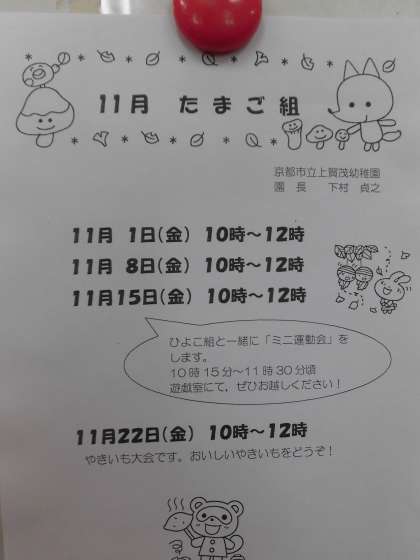 11月 たまご組
京都市立上賀茂幼稚園
園 長 下村 貞之
11月 1日(金) 10時～12時
11月 8日(金) 10時～12時
11月15日(金) 10時～12時
ひよこ組と一緒に「ミニ運動会」を
します。
10時15分～11時30分頃
遊戯室にて，ぜひお越しください！
11月22日(金) 10時～12時
やきいも大会です。おいしいやきいもをどうぞ！